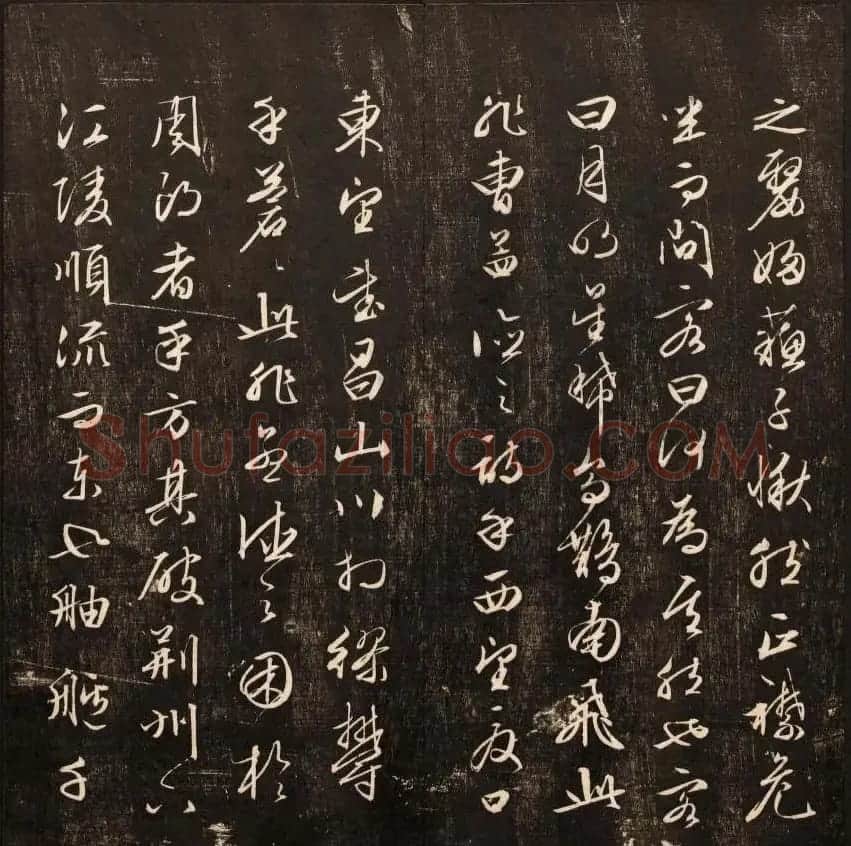 之嫠婦蘓子愀然正襟危
坐而問客曰何為其然也客
曰月明星稀烏鵲南飛此
非曹孟德之詩乎西望夏口
東望武昌山川相繆鬱
乎蒼〻此非孟德之困於
周郎者乎方其破荊州下
江陵順流而東也舳艫千
Shufaziliao.COM